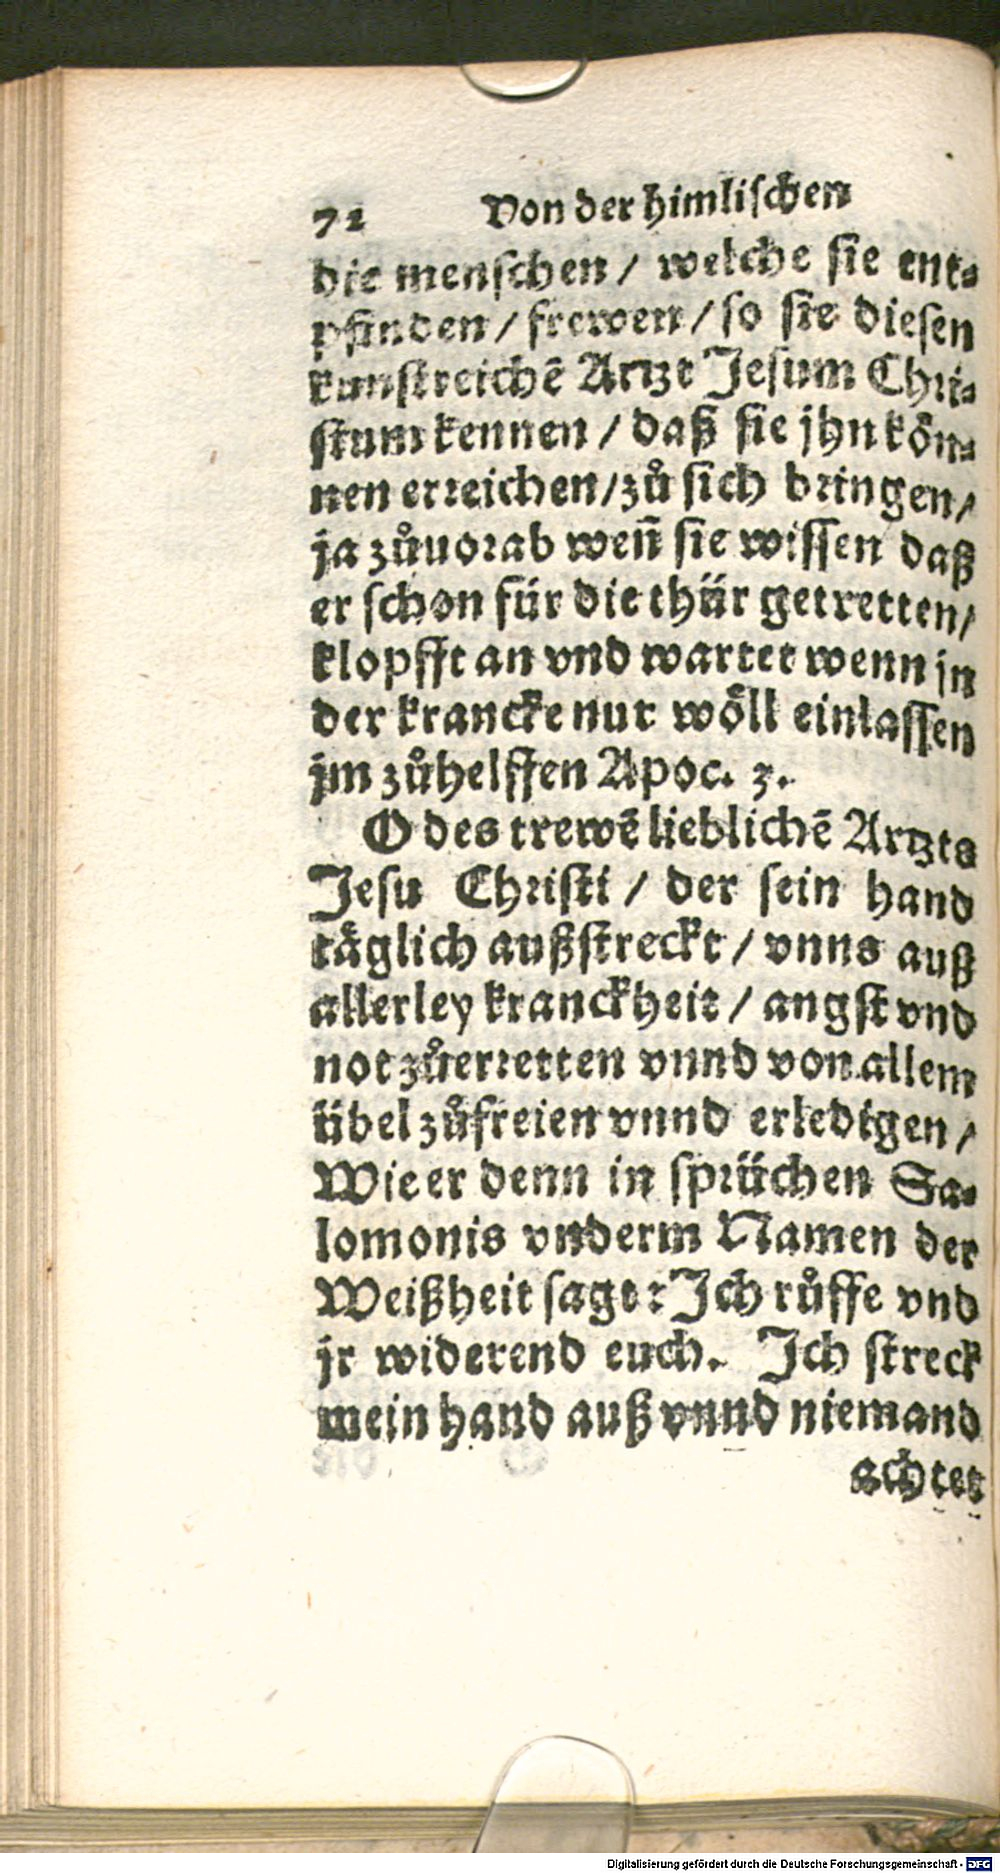 72 Von der himlischen
die menschen / welche sie ent⸗
pfinden / frewen / so sie diesen
kunstreichē Artzt Jesum Chri⸗
stum kennen / daß sie jhn kön⸗
nen erreichen / zů sich bringen /
ja zůuorab weñ sie wissen daß
er schon für die thür getretten /
klopfft an vnd wartet wenn jn
der krancke nur wöll einlassen
jm zůhelffen Apoc. 3.
O des trewē lieblichē Artzts
Jesu Christi / der sein hand
täglich außstreckt / vnns auß
allerley kranckheit / angst vnd
not zůerretten vnnd von allem
übel zůfreien vnnd erledigen /
Wie er denn in sprüchen Sa⸗
lomonis vnderm Namen der
Weißheit sagt: Ich růffe vnd
jr widerend euch. Ich streck
mein hand auß vnnd niemand
achtet
Digitalisierung gefördert durch die Deutsche Forschungsgemeinschaft - DFG